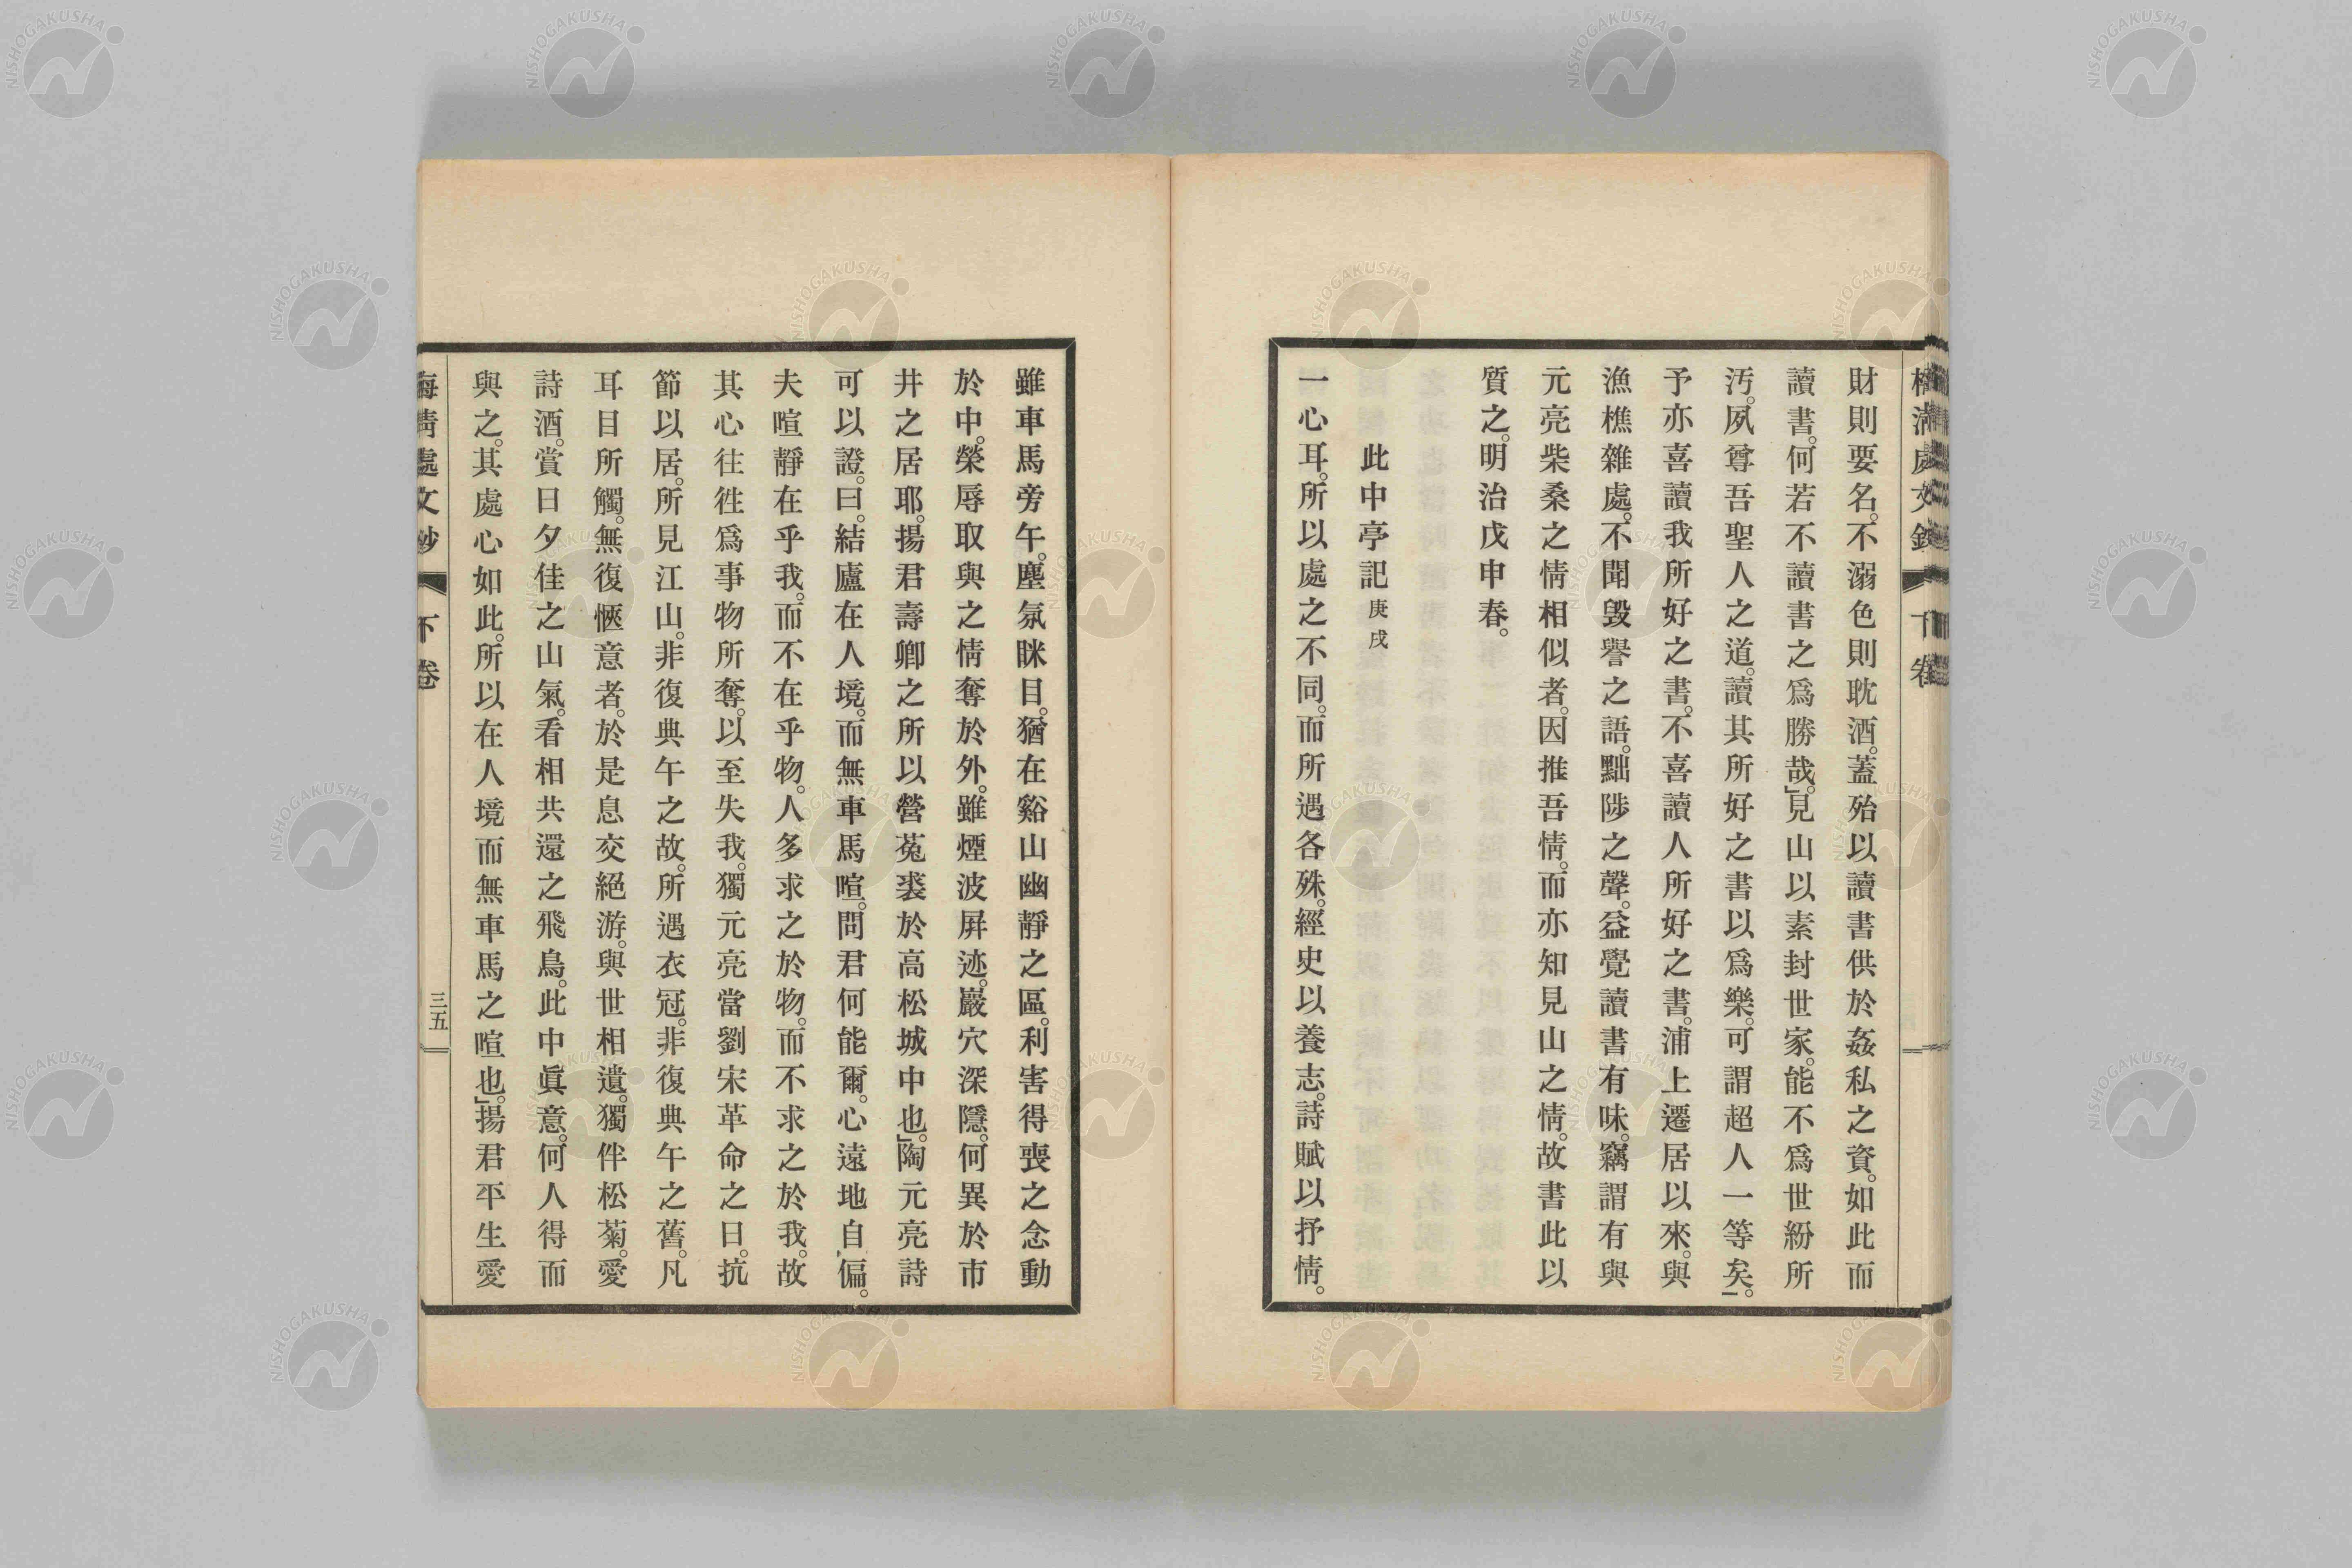 財則要名。不溺色則耽酒。蓋殆以讀書供於姦私之資。如此而
讀書。何若不讀書之爲勝哉。」見山以素封世家。能不爲世紛所
汚。夙尊吾聖人之道。讀其所好之書以爲樂。可謂超人一等矣。」
予亦喜讀我所好之書。不喜讀人所好之書。浦上遷居以來。與
漁樵雜處。不聞毀譽之語。黜陟之聲。益覺讀書有味。竊謂有與
元亮柴桑之情相似者。因推吾情。而亦知見山之情。故書此以
質之。明治戊申春。
此中亭記 庚戌
一心耳。所以處之不同。而所遇各殊。經史以養志。詩賦以抒情。
雖車馬旁午。塵氛眯目。猶在谿山幽靜之區。利害得喪之念動
於中。榮辱取與之情奪於外。雖煙波屛迹。巖穴深隱。何異於市
井之居耶。揚君壽卿之所以營菟裘於高松城中也。」陶元亮詩
可以證。曰。結廬在人境。而無車馬喧。問君何能爾。心遠地自偏。
夫喧靜在乎我。而不在乎物。人多求之於物。而不求之於我。故
其心往徃爲事物所奪。以至失我。獨元亮當劉宋革命之日。抗
節以居。所見江山。非復典午之故。所遇衣冠。非復典午之舊。凡
耳目所觸。無復愜意者。於是息交絕游。與世相遺。獨伴松菊。愛
詩酒。賞日夕佳之山氣。看相共還之飛鳥。此中眞意。何人得而
與之。其處心如此。所以在人境而無車馬之喧也。」揚君平生愛
處文鈔 下卷 三五
NISHOGAKUSHA